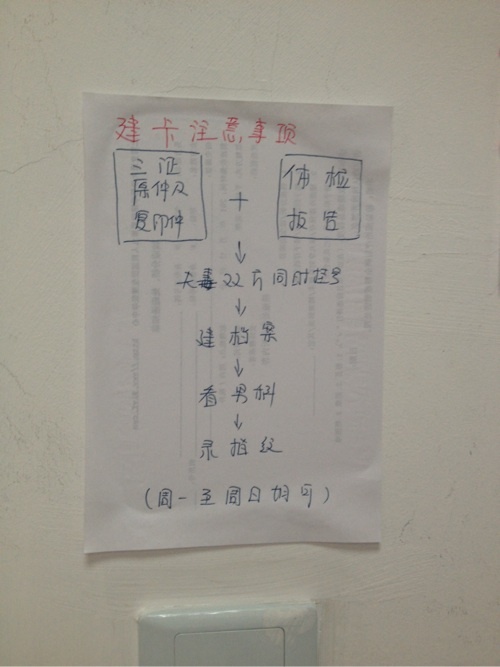 建卡注意事项
三证
原件及
复印件
+
体检
报告
↓
夫妻22方同时挂号
↓
建档案
↓
看男科
↓
录指纹
(周一至周日均可)